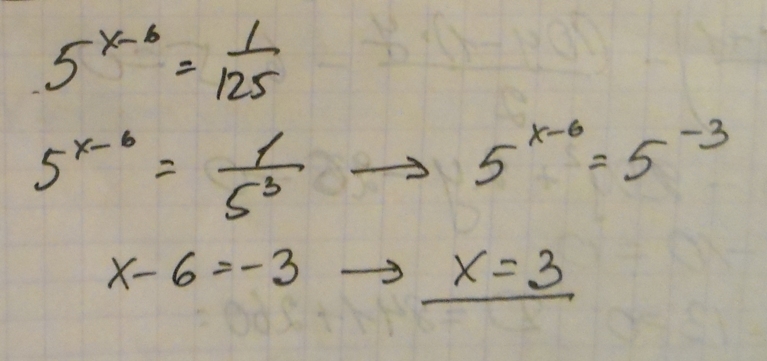 5^{x-6} = 1/125
5^{x-6} = 1/5^3 → 5^{x-6} = 5^{-3}
x-6=-3 → x=3